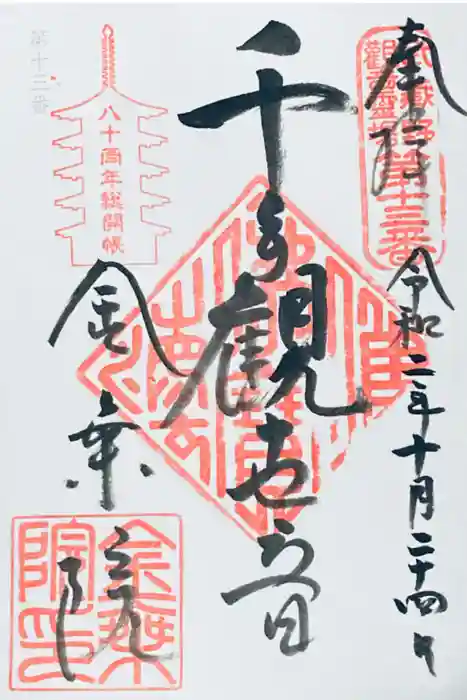 奉拝
武蔵野
觀音霊場
第十三番
令和二年十月二十四日
千手観世音
金乗院
八十周年総開帳
第十三番
金乗
院印